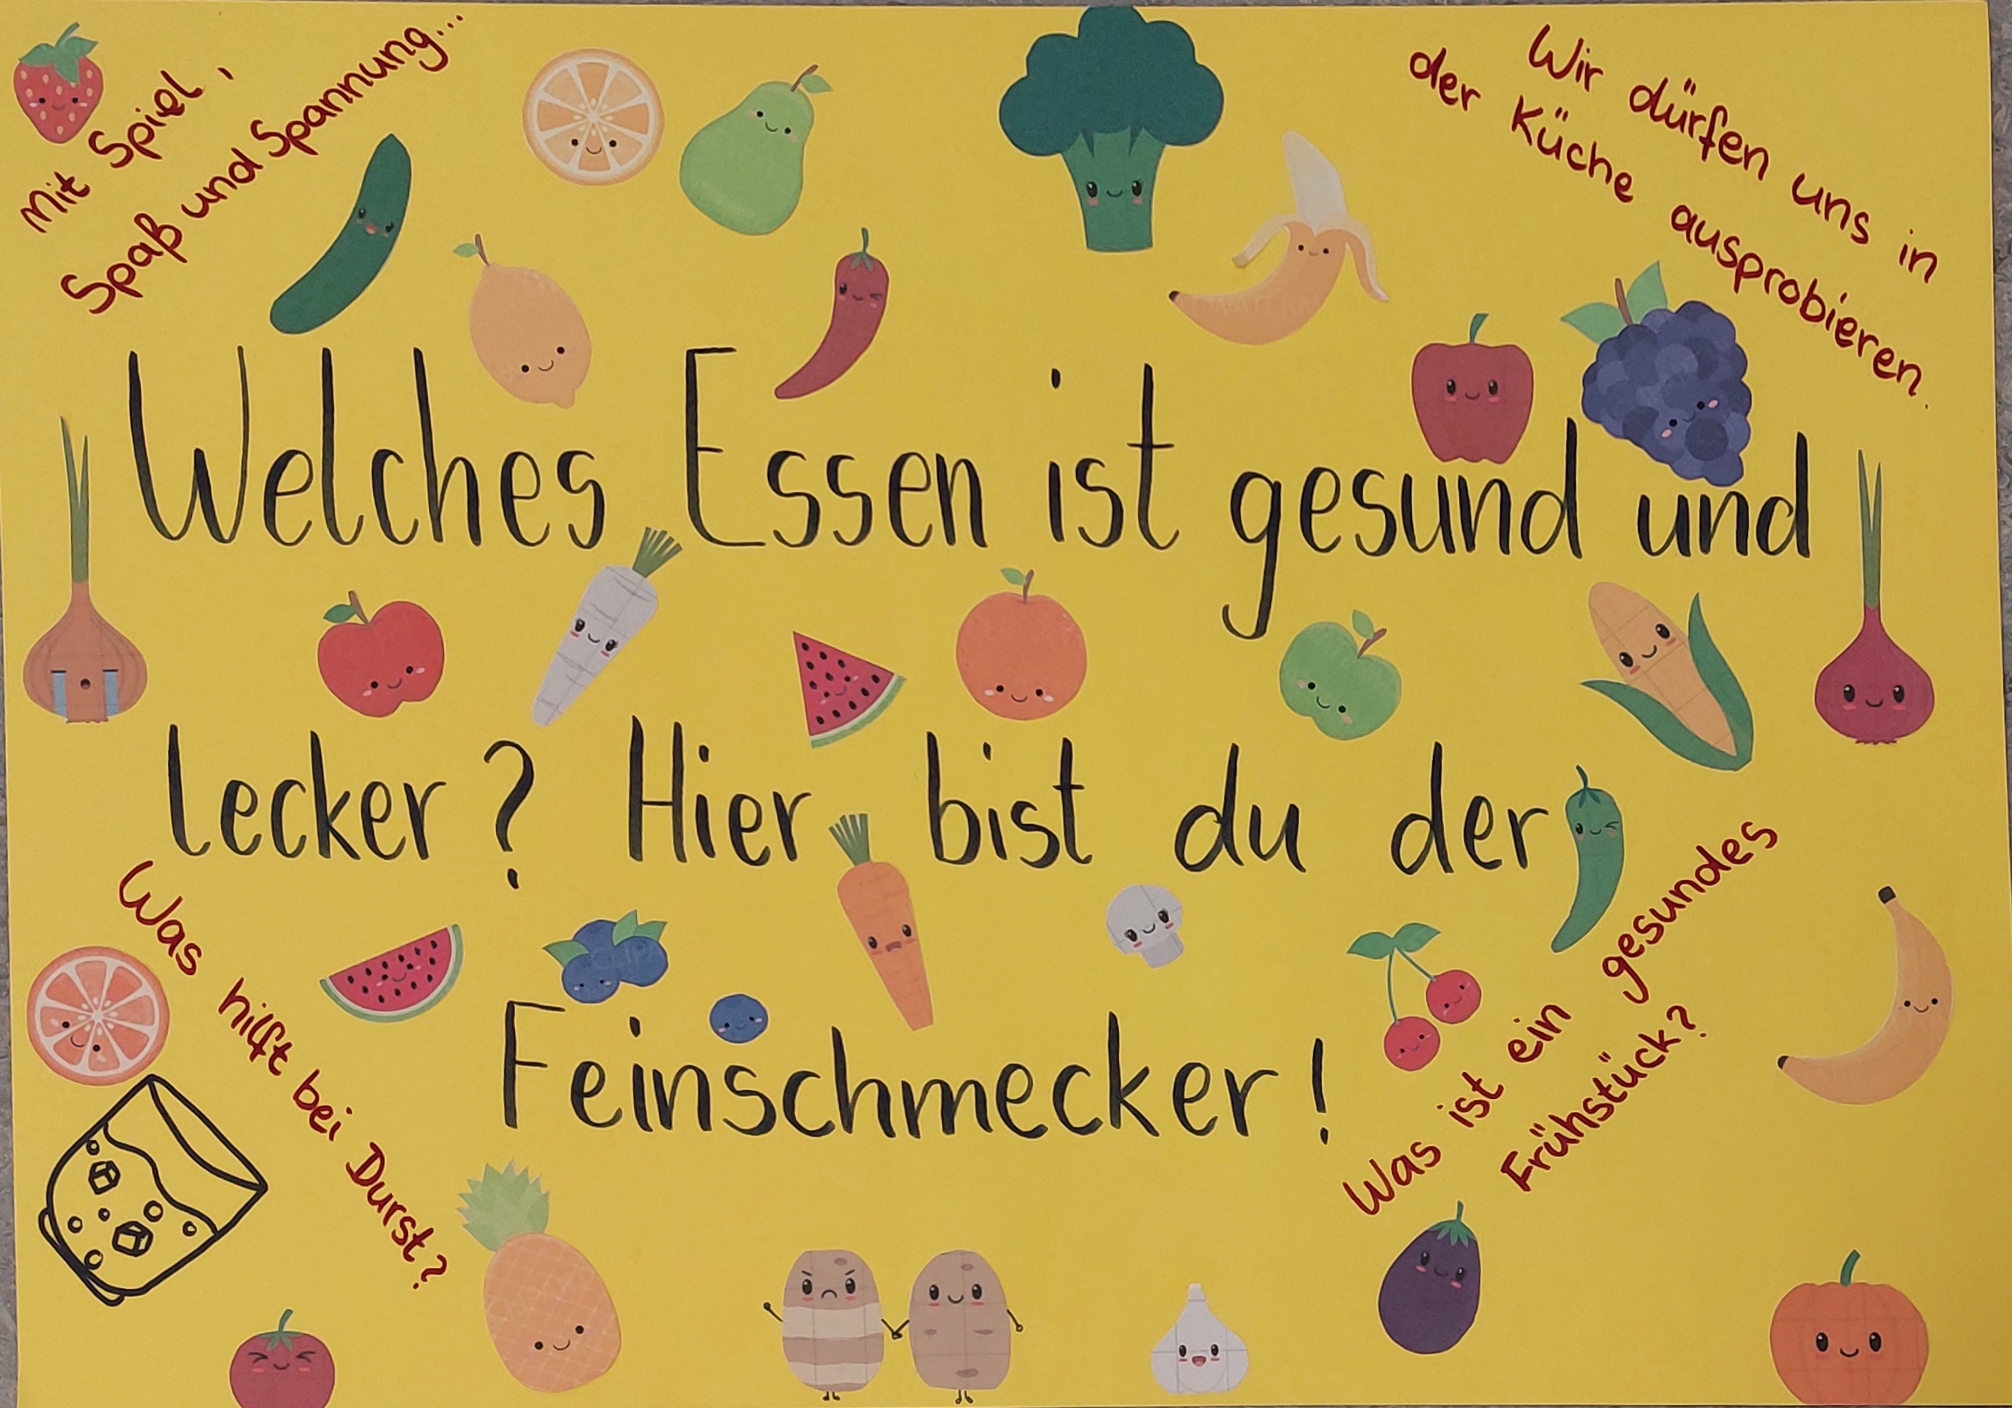 Mit Spiel,
Spaß und Spannung...
Wir dürfen uns in
der Küche ausprobieren.
Welches Essen ist gesund und
lecker? Hier bist du der
Feinschmecker!
Was hilft bei Durst?
Was ist ein gesundes
Frühstück?